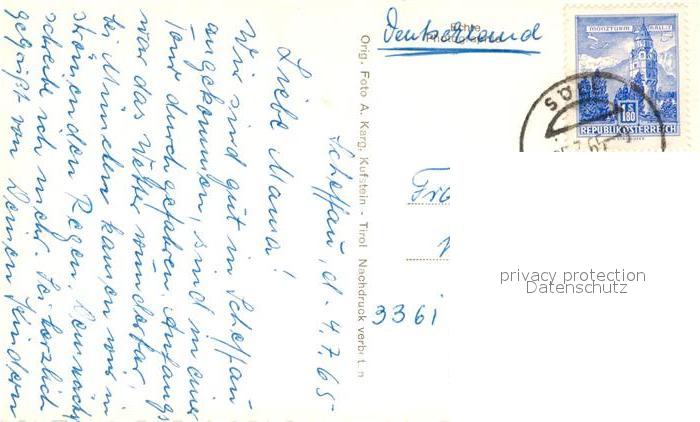 Scheffau, d. 4.7.65
Liebe Mama!
Wir sind gut in Scheffau
angekommen, sind in einer
Tour durchgefahren. Anfangs
war das Wetter wunderbar,
bei München kamen wir in
strömenden Regen. Demnächst
schreibe ich mehr. Sei herzlich
gegrüßt von Deinen Kindern
Orig. Foto A. Karg, Kufstein - Tirol Nachdruck verboten
Echte
Deutschland
MÜNZTURM HALL i. T.
1.80
REPUBLIK ÖSTERREICH
SÖ
Fra
3361
privacy protection
Datenschutz